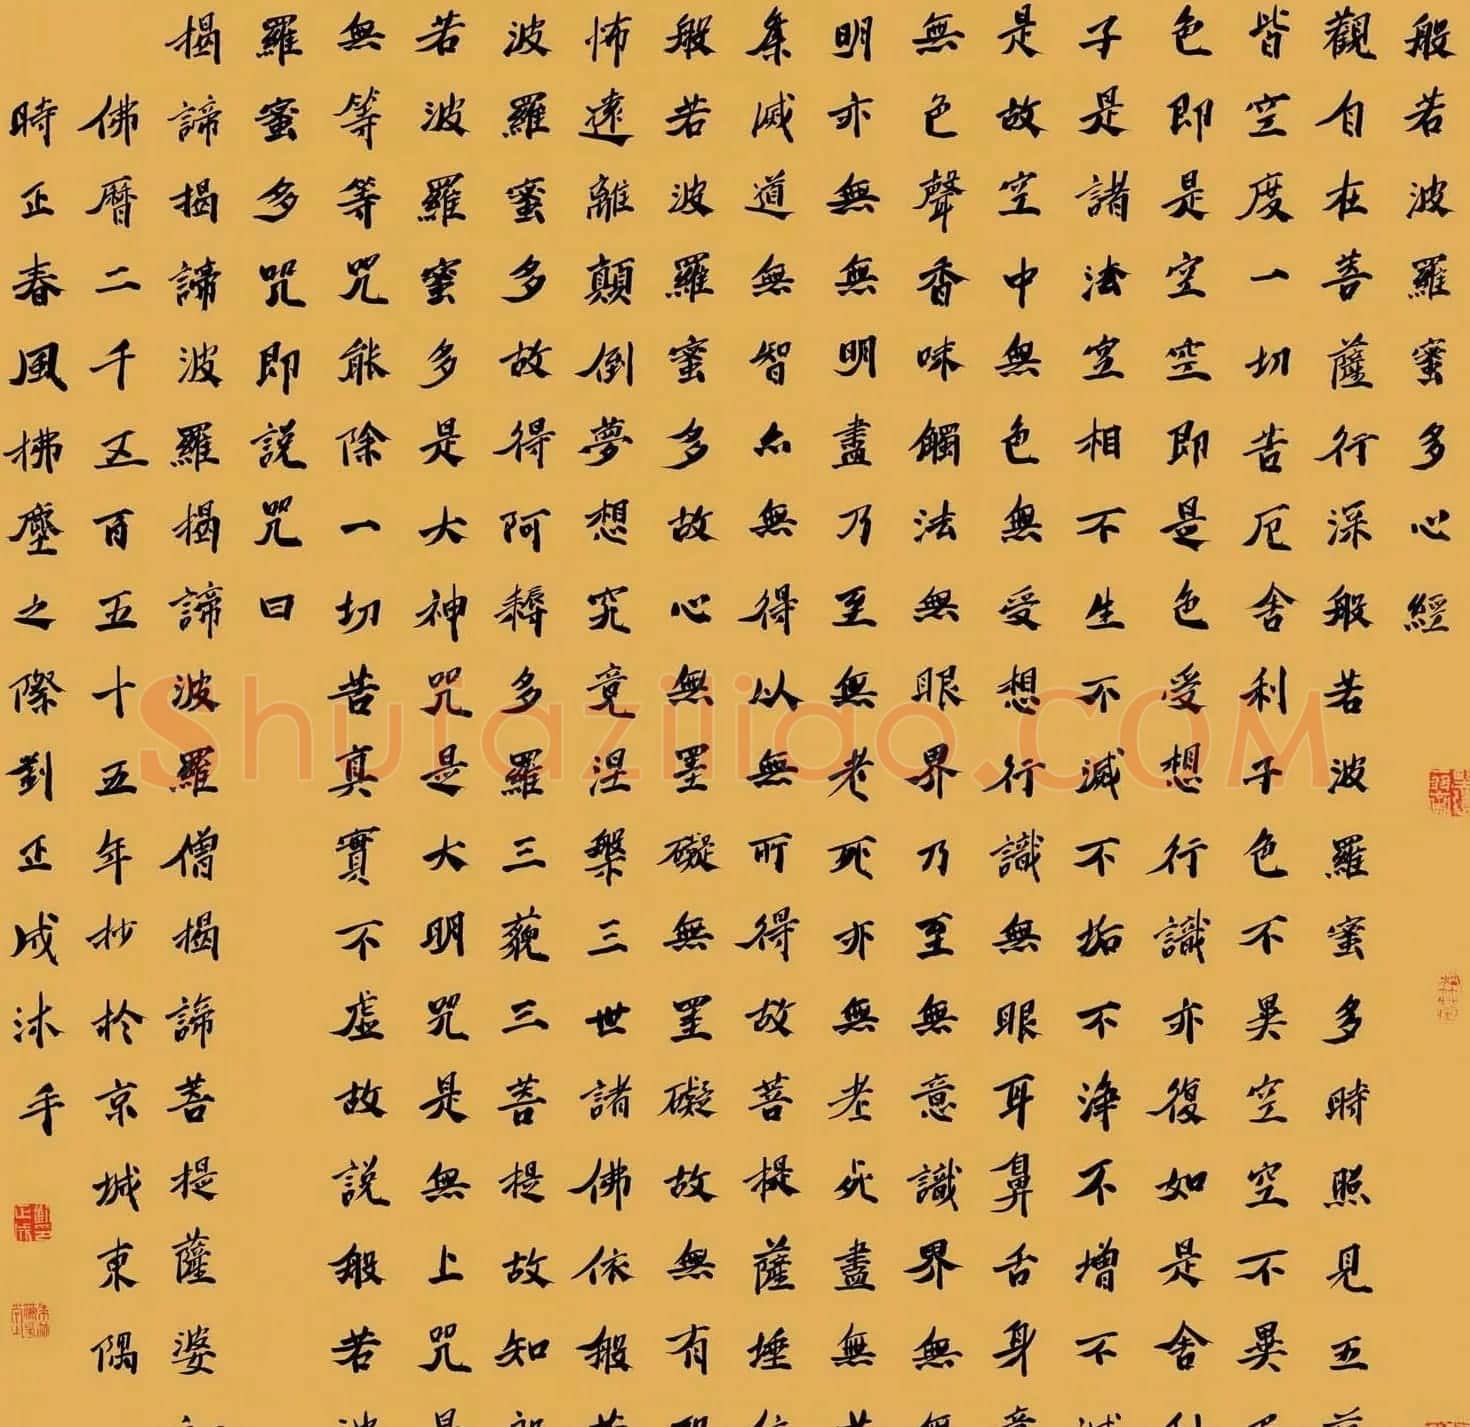 般若波羅蜜多心經
觀自在菩薩行深般若波羅蜜多時照見五
皆空度一切苦厄舍利子色不異空空不異
色即是空空即是色受想行識亦復如是舍
子是諸法空相不生不滅不垢不淨不增不
是故空中無色無受想行識無眼耳鼻舌身
無色聲香味觸法無眼界乃至無意識界無
明亦無無明盡乃至無老死亦無老死盡無
集滅道無智亦無得以無所得故菩提薩埵
般若波羅蜜多故心無罣礙無罣礙故無有
怖遠離顛倒夢想究竟涅槃三世諸佛依般
波羅蜜多故得阿耨多羅三藐三菩提故知
若波羅蜜多是大神咒是大明咒是無上咒
無等等咒能除一切苦真實不虛故説般若
羅蜜多咒即説咒曰
揭諦揭諦波羅揭諦波羅僧揭諦菩提薩婆
佛曆二千五百五十五年抄於京城東隅
時正春風拂塵之際劉正成沐手
Shufaziliao.COM